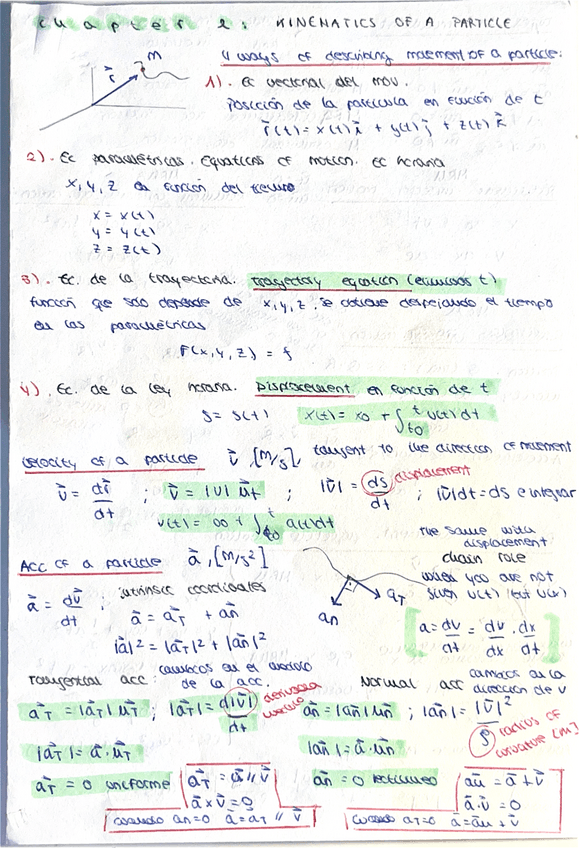 Chapter 2: KINEMATICS OF A PARTICLE
4 ways of describing movement of a particle:
M
r⃗
1). Ec vectorial del mov.
Posición de la partícula en función de t
r⃗(t) = x(t) i⃗ + y(t) j⃗ + z(t) k⃗
2). Ec paramétricas. Equations of motion. Ec horaria
x, y, z en función del tiempo
x = x(t)
y = y(t)
z = z(t)
3). Ec. de la trayectoria. Trajectory equation (eliminas t)
función que solo depende de x, y, z. se obtiene despejando el tiempo
en las paramétricas
F(x, y, z) = f
4). Ec. de la ley horaria. Displacement en función de t
s = s(t) x(t) = x0 + ∫t0^t v(t) dt
Velocity of a particle v⃗, [m/s] tangent to the direction of movement
v⃗ = dr⃗/dt ; v⃗ = |v| u⃗t ; |v⃗| = ds/dt displacement ; |v⃗|dt = ds e integrar
v(t) = v0 + ∫t0^t a(t) dt
the same with
displacement
Acc of a particle a⃗, [m/s²]
chain rule
when you are not
given v(t) but v(x)
a⃗ = dv⃗/dt ; intrinsic coordinates
a⃗ = a⃗T + a⃗n
|a⃗|² = |a⃗T|² + |a⃗n|²
an aT
[a = dv/dt = dv/dx · dx/dt]
Tangential acc: cambios en el modulo de la acc.
a⃗T = |a⃗T| u⃗T ; |a⃗T| = d|v⃗|/dt derivada modulo
|a⃗T| = a⃗ · u⃗T
a⃗T = 0 uniforme
a⃗T = a⃗ // v⃗
a⃗ x v⃗ = 0
cuando an=0 a⃗ = a⃗T // v⃗
Normal acc cambios en la dirección de v
a⃗n = |a⃗n| u⃗n ; |a⃗n| = |v⃗|²/ρ radius of curvature [m]
|a⃗n| = a⃗ · u⃗n
a⃗n = 0 rectilíneo
a⃗n = a⃗ ⊥ v⃗
a⃗ · v⃗ = 0
cuando aT=0 a⃗ = a⃗n ⊥ v⃗